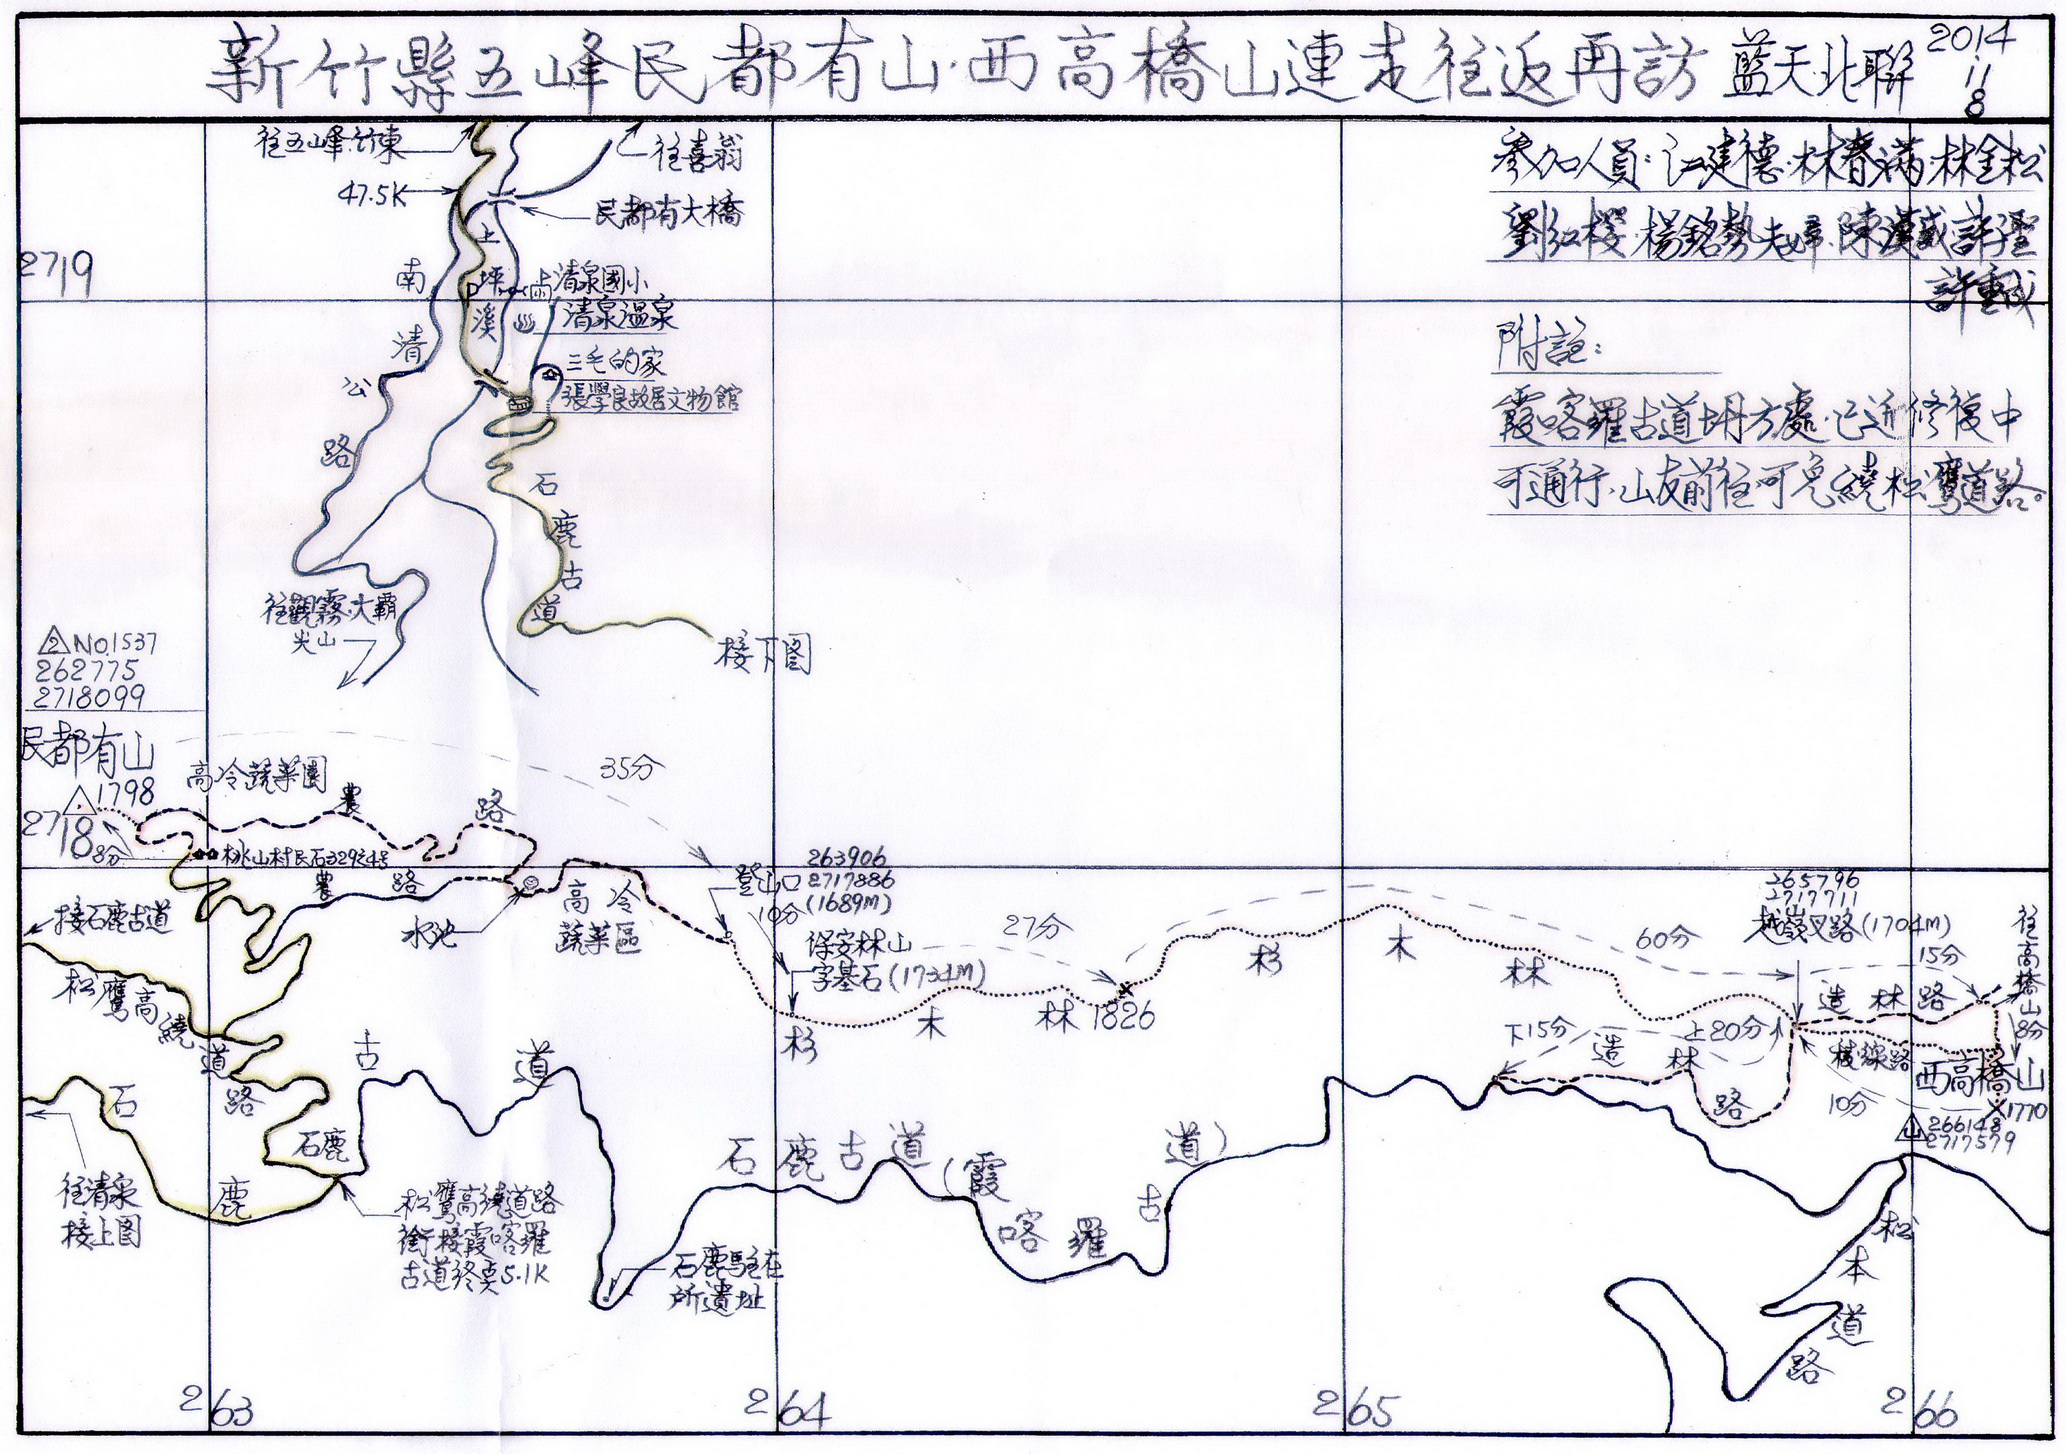 新竹縣五峰民都有山·西高橋山連走往返再訪 藍天·北聯 2014
11
8
往五峰·竹東
往喜翁
47.5K
民都有大橋
參加人員:江建德·林春滿·林全松
劉紅櫻·楊銘勢夫婦·陳漢威·許聖
許重成
附註:
霞喀羅古道坍方處·已近修復中
可通行·山友前往可免繞松鷹道路。
2719
上坪溪
P
清泉國小
清泉溫泉
三毛的家
張學良故居文物館
南清公路
石鹿古道
往觀霧·大霸
尖山
接下图
2 NO.1537
262775
2718099
民都有山
1798
2718
8分
高冷蔬菜園
農路
35分
桃山村民石329之4号
農路
水池
高冷
蔬菜區
登山口
263906
2717886
(1689M)
10分
保安林山
字基石(1734M)
27分
杉木林
1826
杉木林
60分
265796
2717711
越嶺叉路(1704M)
15分
往高橋山
造林路
8分
稜線路
西高橋山
1770
10分
山 266148
2717579
下15分
上20分
造林路
接石鹿古道
松鷹高繞道路
石鹿古道
石鹿
往清泉
接上图
松鷹高繞道路
銜接霞喀羅
古道終點5.1K
石鹿駐在
所遺址
石鹿古道(霞喀羅古道)
松本道路
263
264
265
266